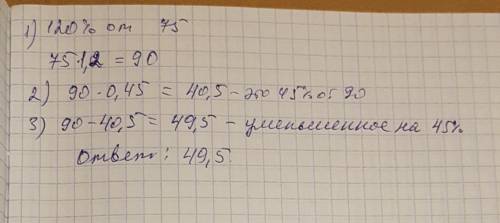 1) 120% от 75
75·1,2 = 90
2) 90·0,45 = 40,5 - это 45% от 90
3) 90-40,5 = 49,5 - уменьшенное на 45%
Ответ: 49,5.